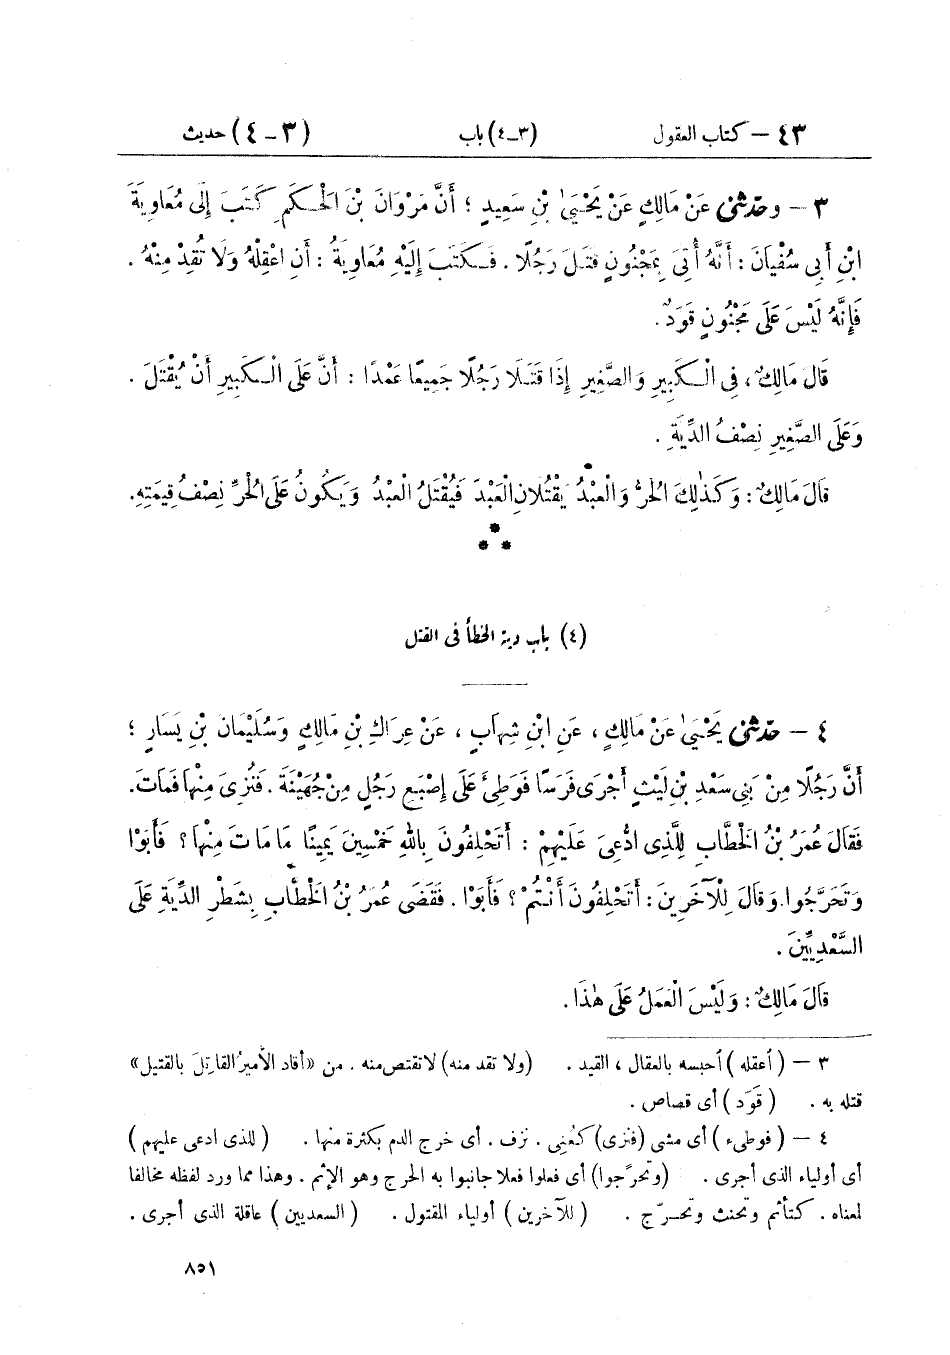 ٤٣ – كتاب العقول (٣–٤) باب (٣ – ٤) حديث
٣ – وحَدَّثَنِى عَنْ مَالِكٍ عَنْ يَحْيَىٰ بْنِ سَعِيدٍ ؛ أَنَّ مَرْوَانَ بْنَ الْحَكَمِ كَتَبَ إِلَى مُعَاوِيَةَ
ابْنِ أَبِى سُفْيَانَ : أَنَّهُ أُتِىَ بِمَجْنُونٍ قَتَلَ رَجُلًا . فَكَتَبَ إِلَيْهِ مُعَاوِيَةُ : أَنِ اعْقِلْهُ وَلَا تُقِدْ مِنْهُ .
فَإِنَّهُ لَيْسَ عَلَى مَجْنُونٍ قَوَدٌ .
قَالَ مَالِكٌ ، فِى الْكَبِيرِ وَالصَّغِيرِ إِذَا قَتَلَا رَجُلًا جَمِيعًا عَمْدًا : أَنَّ عَلَى الْكَبِيرِ أَنْ يُقْتَلَ .
وَعَلَى الصَّغِيرِ نِصْفُ الدِّيَةِ .
قَالَ مَالِكٌ : وَكَذٰلِكَ الْحُرُّ وَالْعَبْدُ يَقْتُلَانِ الْعَبْدَ فَيُقْتَلُ الْعَبْدُ وَيَكُونُ عَلَى الْحُرِّ نِصْفُ قِيمَتِهِ .
*
* *
(٤) باب دية الخطأ فى القتل
٤ – حَدَّثَنِى يَحْيَىٰ عَنْ مَالِكٍ ، عَنِ ابْنِ شِهَابٍ ، عَنْ عِرَاكِ بْنِ مَالِكٍ وَسُلَيْمَانَ بْنِ يَسَارٍ ؛
أَنَّ رَجُلًا مِنْ بَنِى سَعْدِ بْنِ لَيْثٍ أَجْرَى فَرَسًا فَوَطِئَ عَلَى إِصْبَعِ رَجُلٍ مِنْ جُهَيْنَةَ . فَنُزِىَ مِنْهَا فَمَاتَ .
فَقَالَ عُمَرُ بْنُ الْخَطَّابِ لِلَّذِى ادُّعِىَ عَلَيْهِمْ : أَتَحْلِفُونَ بِاللهِ خَمْسِينَ يَمِينًا مَا مَاتَ مِنْهَا ؟ فَأَبَوْا
وَتَحَرَّجُوا . وَقَالَ لِلْآخَرِينَ : أَتَحْلِفُونَ أَنْتُمْ ؟ فَأَبَوْا . فَقَضَى عُمَرُ بْنُ الْخَطَّابِ بِشَطْرِ الدِّيَةِ عَلَى
السَّعْدِيِّينَ .
قَالَ مَالِكٌ : وَلَيْسَ الْعَمَلُ عَلَى هٰذَا .
٣ – (أعقله) أحبسه بالعقال ، القيد . (ولا تقد منه) لا تقتص منه . من «أقاد الأميرُ القاتِلَ بالقتيل»
قتله به . (قَوَد) أى قصاص .
٤ – (فوطىء) أى مشى (فنزى) كعُنِى . نزف . أى خرج الدم بكثرة منها . (للذى ادعى عليهم)
أى أولياء الذى أجرى . (وتحرّجوا) أى فعلوا فعلا جانبوا به الحرج وهو الإثم . وهذا مما ورد لفظه مخالفا
لمعناه . كتأثم وتحنث وتحرّج . (للآخرين) أولياء المقتول . (السعديين) عاقلة الذى أجرى .
٨٥١